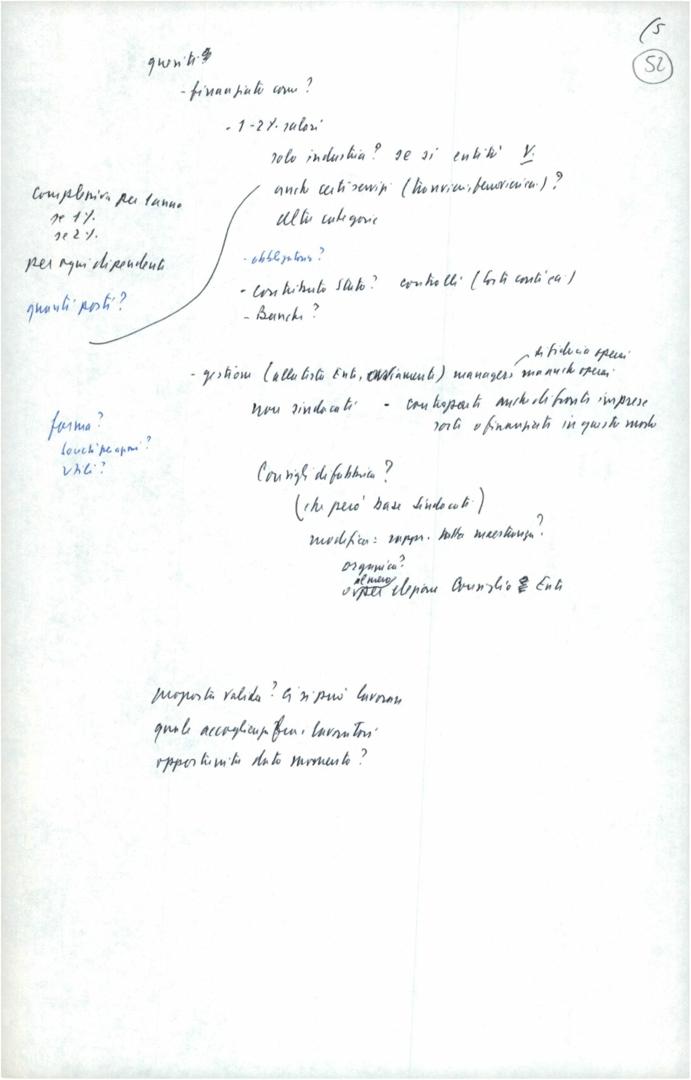 (5
52
quesiti
- finanziato come?
- 1-2% salari
solo industria? se si entità V.
anche certi servizi (tranvieri, ferrovieri)?
altre categorie
complessiva per 1 anno
se 1%
se 2%
per ogni dipendente
quanti posti?
- obbligatorio?
- contributo Stato? controlli (Corti conti ca)
- Banche?
di fiducia operai
- gestione (alla testa Enti, ) managers ma anche operai
non sindacati - controparti anche di fronte imprese
sorte o finanziate in questo modo
forma?
utili?
Consigli di fabbrica?
(che però base sindacati)
modifica: rappr. tutta maestranza?
organica?
almeno
o per elezione Consiglio Enti
proposta valida? Ci si può lavorare
quale accoglienza fra i lavoratori
opportunità dato momento?